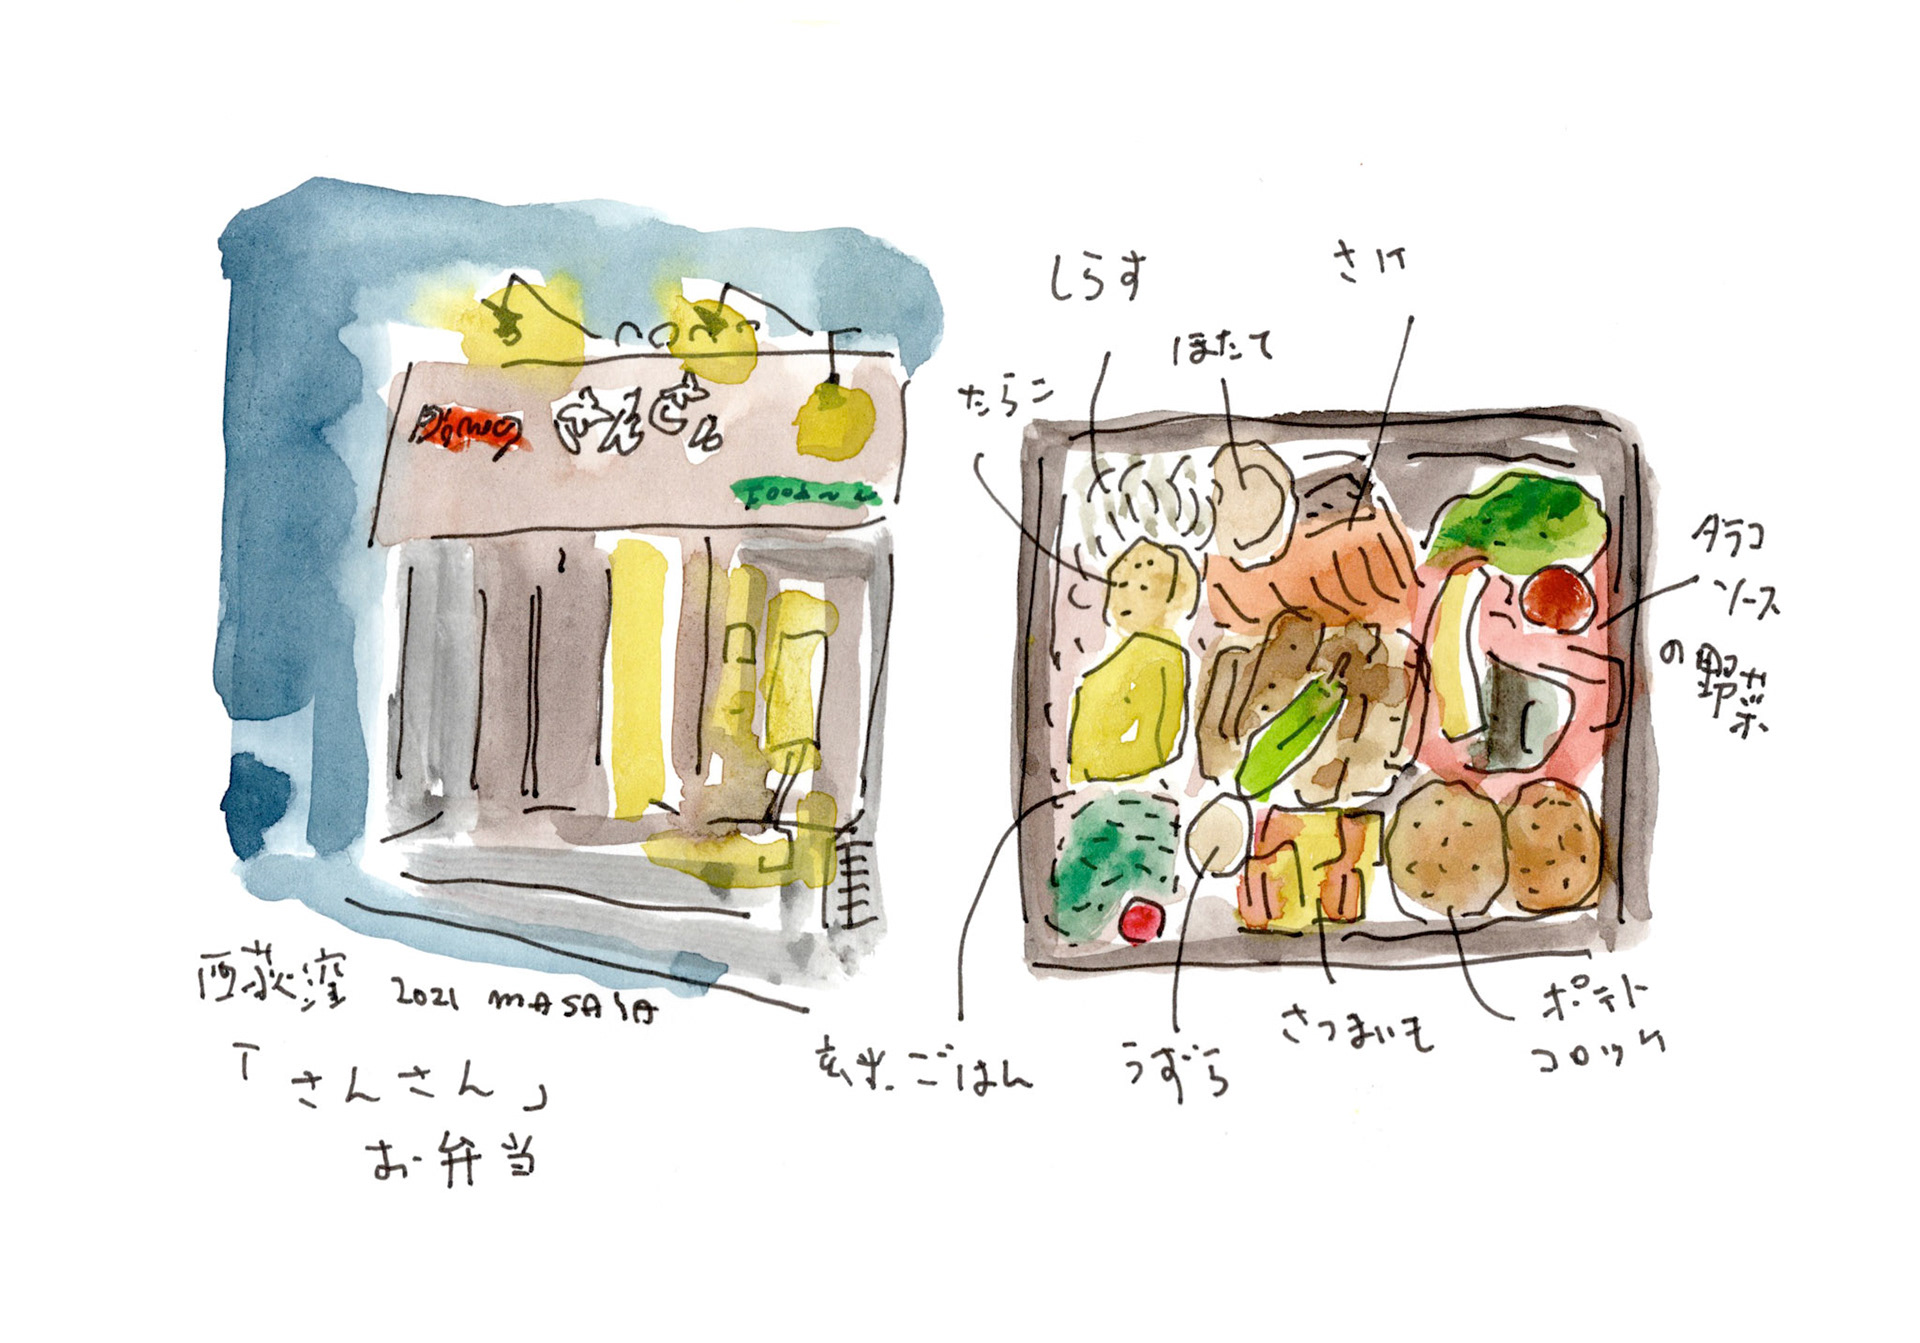 さんさん
しらす
さけ
ほたて
たらこ
タラコ
ソース
の野菜
西荻窪 2021 MASAYA
「さんさん」
お弁当
玄米ごはん
うずら
さつまいも
ポテト
コロッケ